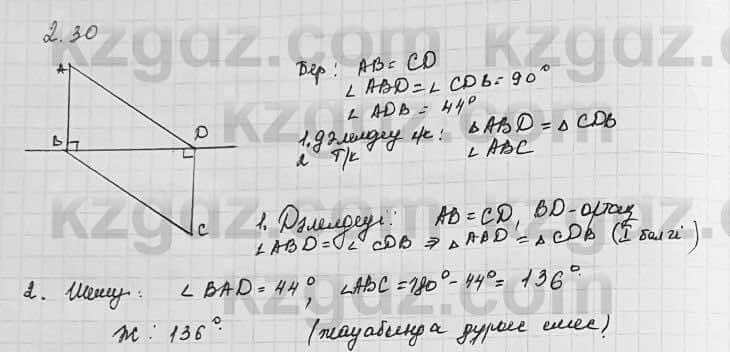 2.30
A
B
D
C
Бер: AB = CD
∠ABD = ∠CDB = 90°
∠ADB = 44°
1. Дәлелдеу к/к: △ABD = △CDB
2 Т/к ∠ABC
1. Дәлелдеуі: AB = CD, BD - ортақ
∠ABD = ∠CDB ⇒ △ABD = △CDB (I белгі)
2. Шешуі: ∠BAD = 44°, ∠ABC = 180° - 44° = 136°.
Ж: 136°. (жауабында дұрыс емес!)
kzgdz.com